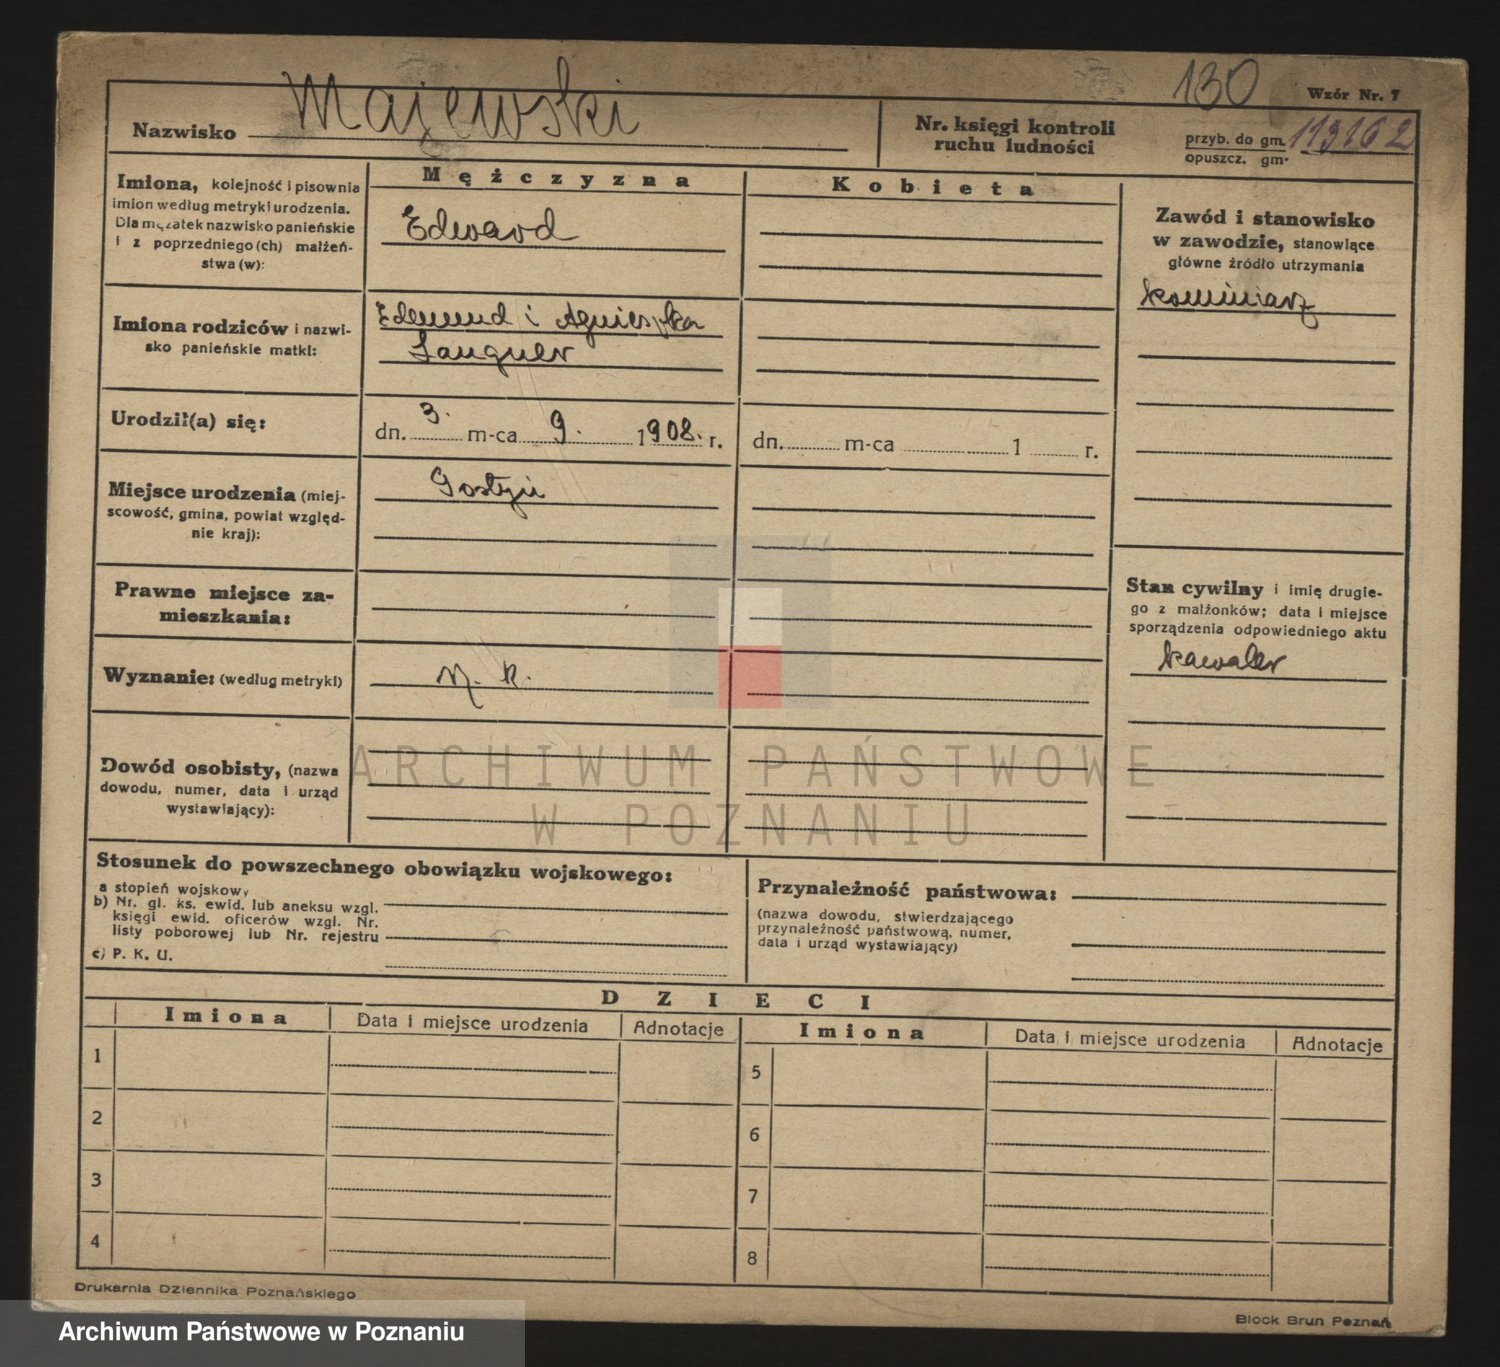 130
Wzór Nr. 7
Nazwisko Majewski
Nr. księgi kontroli
ruchu ludności
przyb. do gm. 113162
opuszcz. gm.
Imiona, kolejność i pisownia
imion według metryki urodzenia.
Dla mężatek nazwisko panieńskie
i z poprzedniego (ch) małżeń-
stwa (w):
Mężczyzna
Edward
Kobieta
Zawód i stanowisko
w zawodzie, stanowiące
główne źródło utrzymania
kominiarz
Imiona rodziców i nazwi-
sko panieńskie matki:
Edmund i Agnieszka
Languer
Urodził(a) się:
dn. 3. m-ca 9. 1908. r.
dn. m-ca 1 r.
Miejsce urodzenia (miej-
scowość, gmina, powiat względ-
nie kraj):
Gostyń
Prawne miejsce za-
mieszkania:
Stan cywilny i imię drugie-
go z małżonków; data i miejsce
sporządzenia odpowiedniego aktu
kawaler
Wyznanie: (według metryki)
r. k.
Dowód osobisty, (nazwa
dowodu, numer, data i urząd
wystawiający):
ARCHIWUM PAŃSTWOWE
W POZNANIU
Stosunek do powszechnego obowiązku wojskowego:
a stopień wojskowy
b) Nr. gl. ks. ewid. lub aneksu wzgl.
księgi ewid. oficerów wzgl. Nr.
listy poborowej lub Nr. rejestru
c) P. K. U.
Przynależność państwowa:
(nazwa dowodu, stwierdzającego
przynależność państwową, numer,
data i urząd wystawiający)
DZIECI
Imiona Data i miejsce urodzenia Adnotacje Imiona Data i miejsce urodzenia Adnotacje
1 5
2 6
3 7
4 8
Drukarnia Dziennika Poznańskiego
Block Brun Poznań
Archiwum Państwowe w Poznaniu